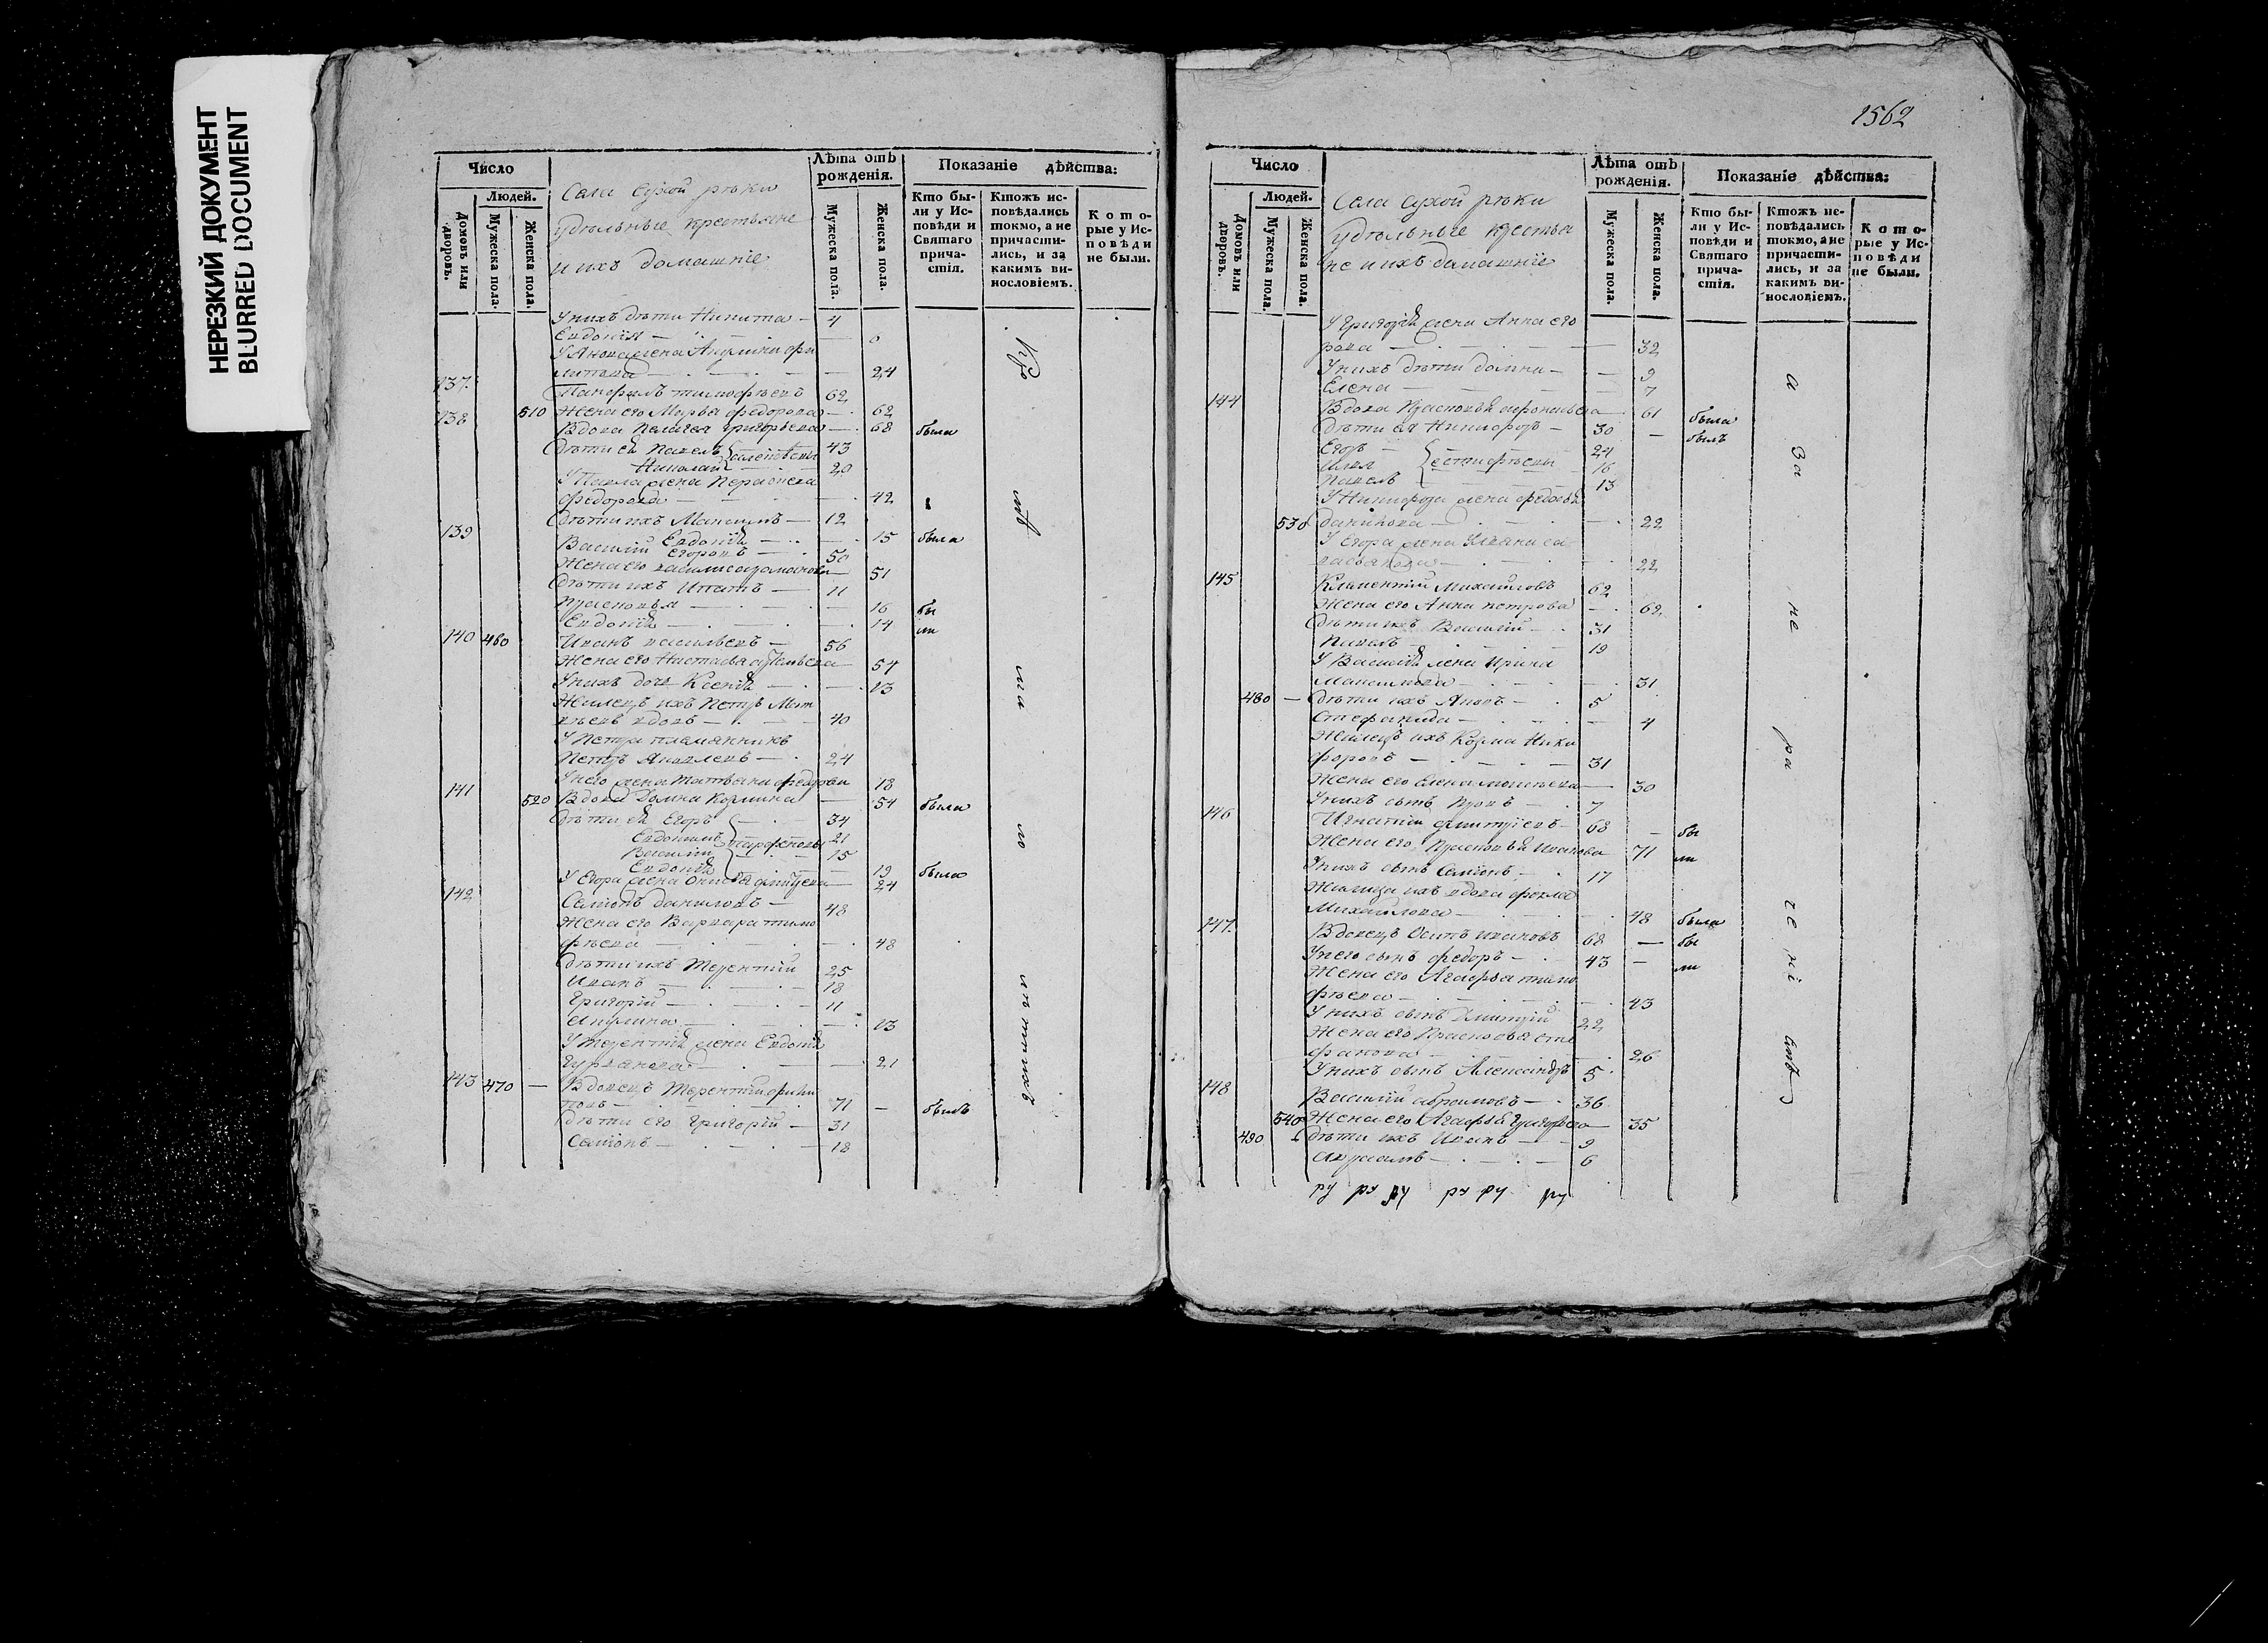 НЕРЕЗКИЙ ДОКУМЕНТ
BLURRED DOCUMENT
Число
Людей.
Домовъ или дворовъ.
Мужеска пола.
Женска пола.
Села Сухой реки
удѣльные крестьяне
и ихъ домашніе
Лѣта отъ рожденія.
Мужеска пола.
Женска пола.
Показаніе дѣйства:
Кто бы-
ли у Ис-
повѣди и
Святаго
прича-
стія.
Ктожъ ис-
повѣдались
токмо, а не
причасти-
лись, и за
какимъ ви-
нословіемъ.
Кото-
рые у Ис-
повѣди
не были.
У нихъ дѣти Никита — 4
Евдокія —
У Якова жена Акулина фи
липова — 24
137 Панфилъ тимофѣевъ 62
510 Жена его Марья федорова — 62
138 Вдова Пелагея григорьева — 68 была
Дѣти ея Павелъ 43
Николай 20
У Павла жена
федорова — 42
Дѣти ихъ Максимъ — 12
Евдокія — 15 была
139 Василій Егоровъ — 50
Жена его василиса — 51
Дѣти ихъ Игнатъ — 11
Прасковья — 16 бы
Евдокія — 14 ли
140 460 Иванъ васильевъ — 56
Жена его Настасья — 54
У нихъ дочь Ксенія — 13
Жилецъ ихъ Петръ Мат
вѣевъ вдовъ — 40
У Петра племянникъ
Петръ Яковлевъ — 24
У него жена Татьяна федорова 18
141 520 Вдова Домна Козмина — 54 была
Дѣти ея Егоръ 34
Евдокимъ парфеновы 21
Василій 15
Евдокія 19 была
У Егора жена дмитріева — 24
142 Семіонъ даниловъ — 48
Жена его Варвара тимо
фѣева — 48
Дѣти ихъ Терентій 25
Иванъ — 18
Григорій — 11
Акулина — 13
У терентія жена Евдокія
— 21
143 470 — Вдовецъ Терентій фили
повъ — 71 — былъ
Дѣти его Григорій — 31
Семіонъ — 18
1562
Число
Людей.
Домовъ или дворовъ.
Мужеска пола.
Женска пола.
Села Сухой реки
удѣльные крестья
не и ихъ домашніе
Лѣта отъ рожденія.
Мужеска пола.
Женска пола.
Показаніе дѣйства:
Кто бы-
ли у Ис-
повѣди и
Святаго
прича-
стія.
Ктожъ ис-
повѣдались
токмо, а не
причасти-
лись, и за
какимъ ви-
нословіемъ.
Кото-
рые у Ис-
повѣди
не были.
У Григорія жена Анна его
рова — 32
У нихъ дѣти домна — 9
Елена — 7
144 Вдова Прасковья — 61 была
Дѣти ея Никифоръ — 30 — былъ
Егоръ — 24
Илья 16
Павелъ 13
У Никифора жена федосья
530 данилова — 22
У Егора жена
— 22
145 Климентій Михайловъ 62
Жена его Анна петрова — 62
Дѣти ихъ Василій — 31
Павелъ — 19
У Василія жена Ирина
Максимова — 31
480 — Дѣти ихъ Яковъ — 5
Стефанида — 4
Жилецъ ихъ Козма Ники
форовъ — 31
Жена его Елена моисеева — 30
У нихъ сынъ — 7
146 Игнатій дмитріевъ — 68 — бы
Жена его Прасковья Иванова 71 ли
У нихъ сынъ Семіонъ — 17
Жилица ихъ вдова фекла
Михайлова — 48 была
147 Вдовецъ Осипъ ивановъ 68 — бы
У него сынъ федоръ — 43 — ли
Жена его Агафья тимо
фѣева — 43
У нихъ сынъ Дмитрій 22
Жена его Прасковья сте
фанова — 26
У нихъ сынъ Александръ 5
148 Василій абрамовъ — 36
540 Жена его Агафья Григорьева — 35
490 Дѣти ихъ Иванъ — 9
Авраамъ — 6
ру ру ру ру ру ру